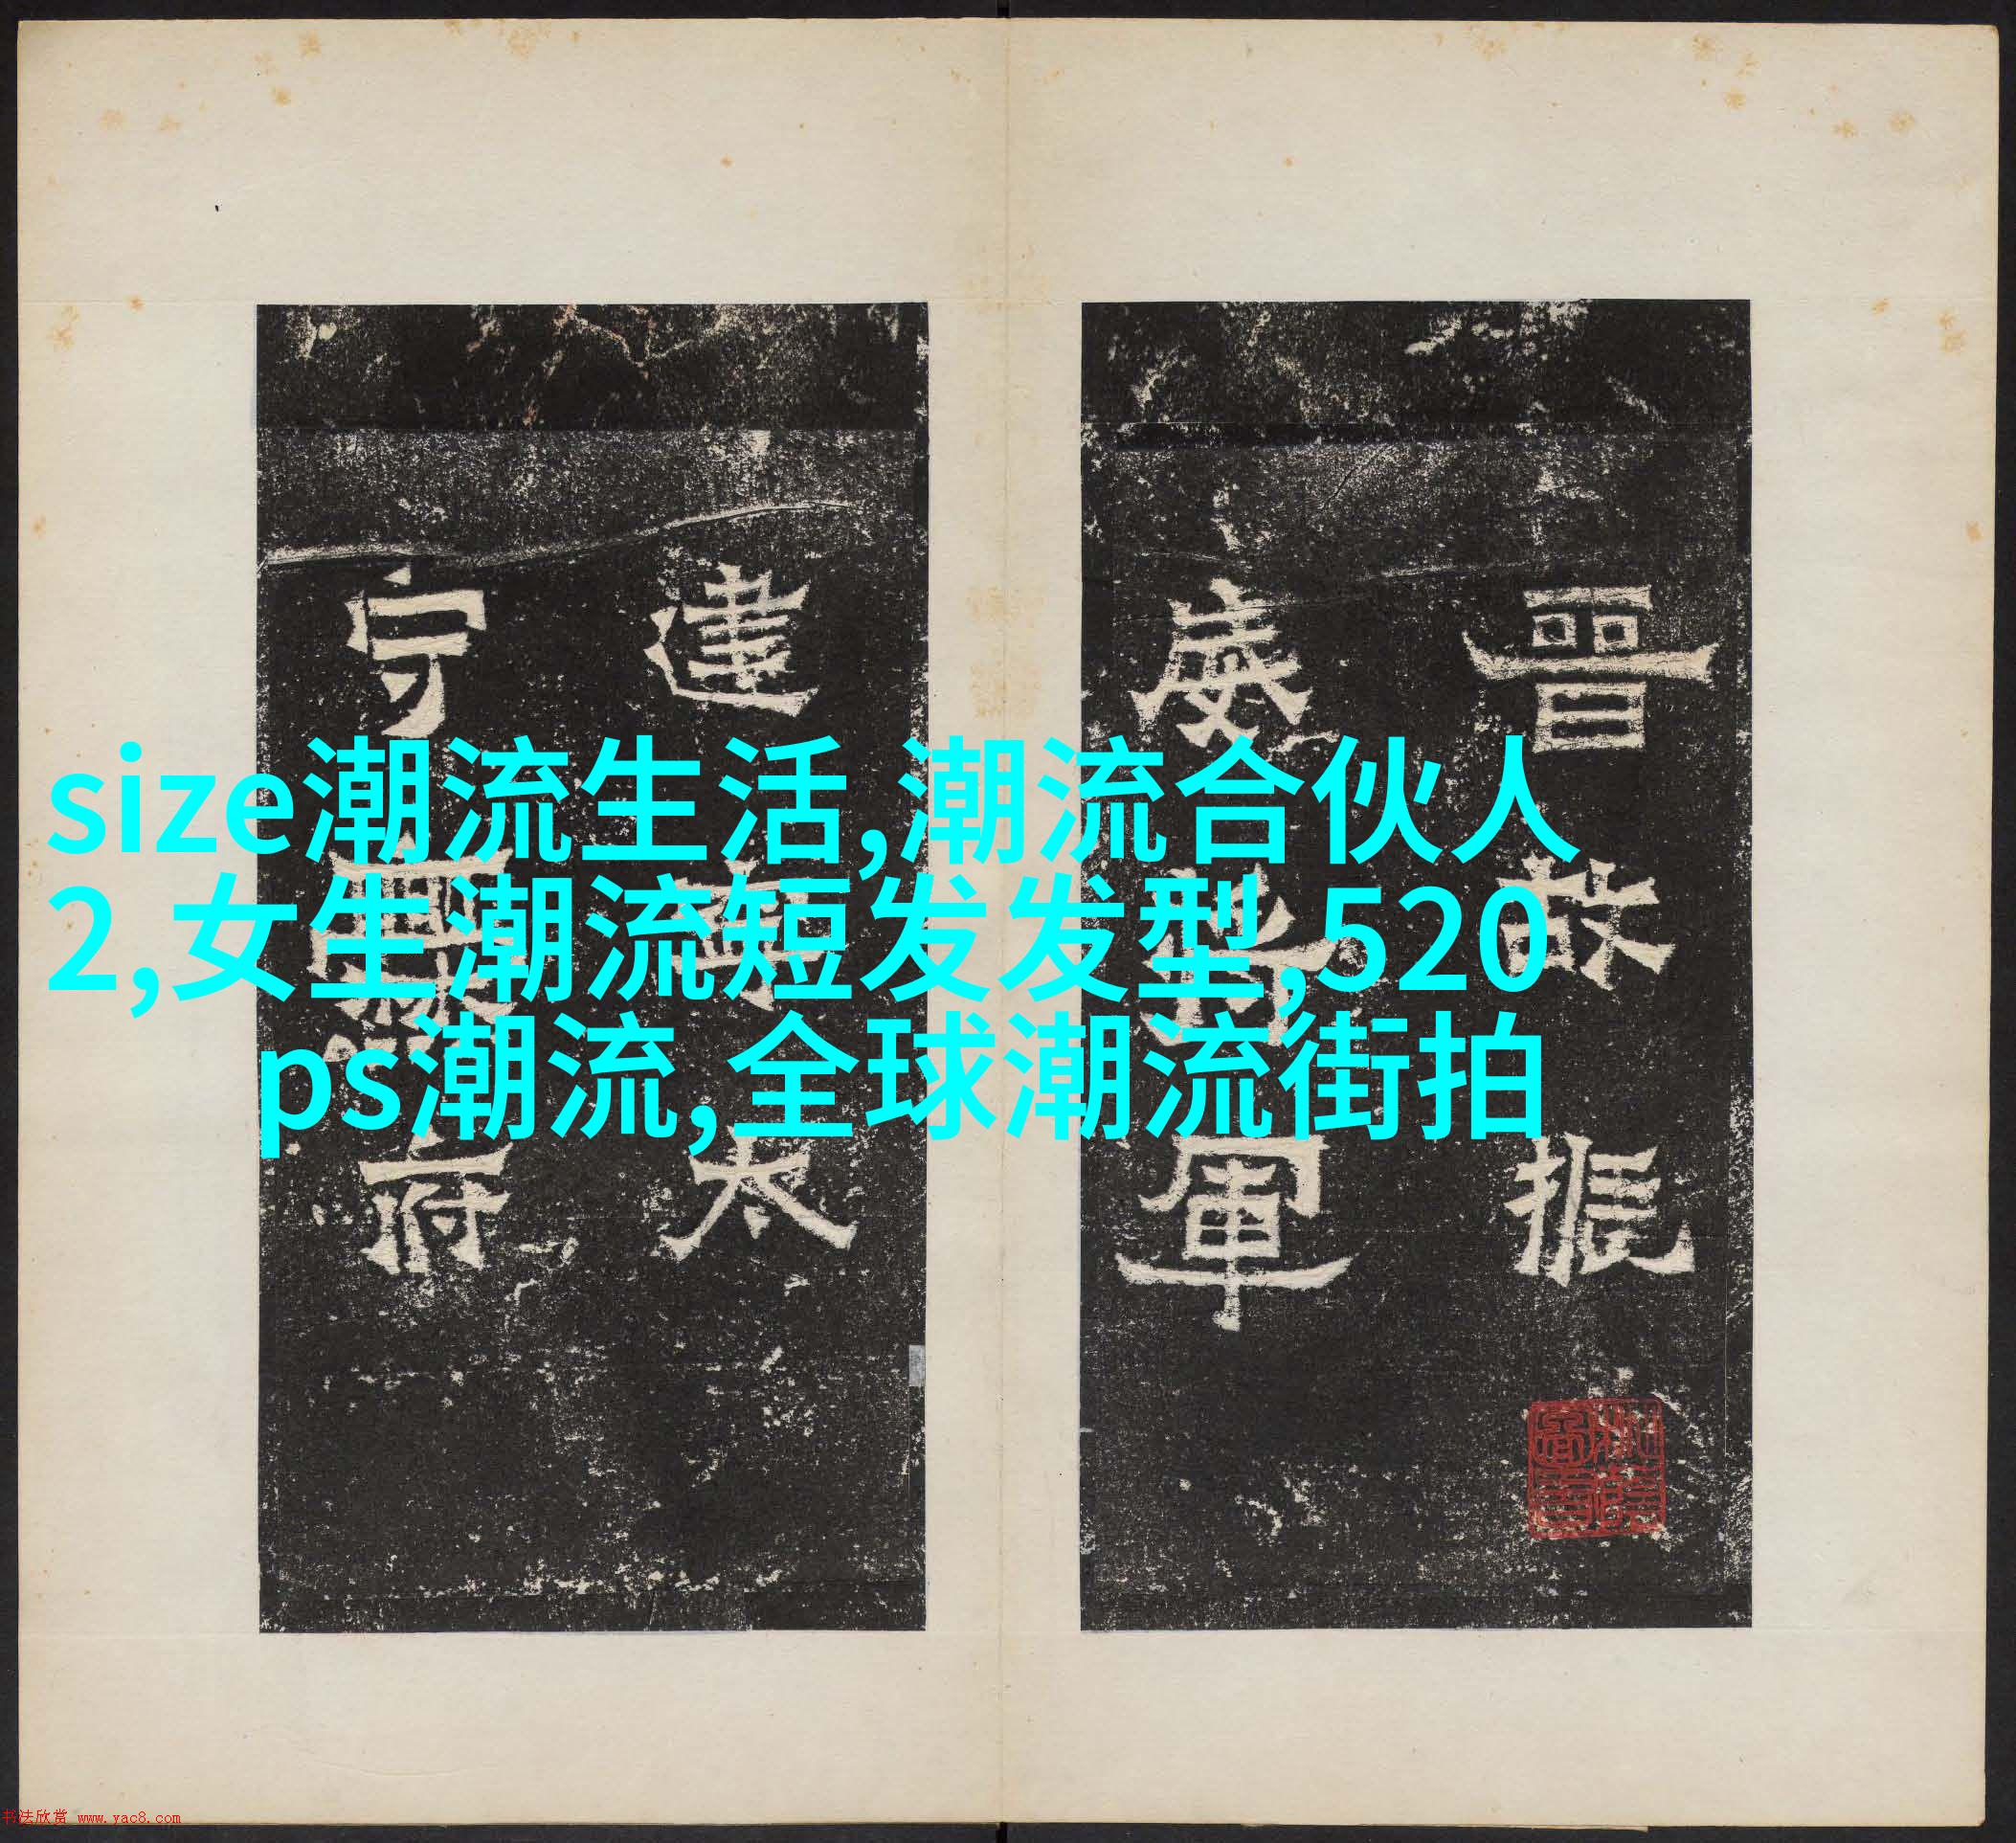 晉故振
威將軍
建寧太
守爨府
size潮流生活,潮流合伙人
2,女生潮流短发发型,520
ps潮流,全球潮流街拍
书法欣赏 www.yac8.com